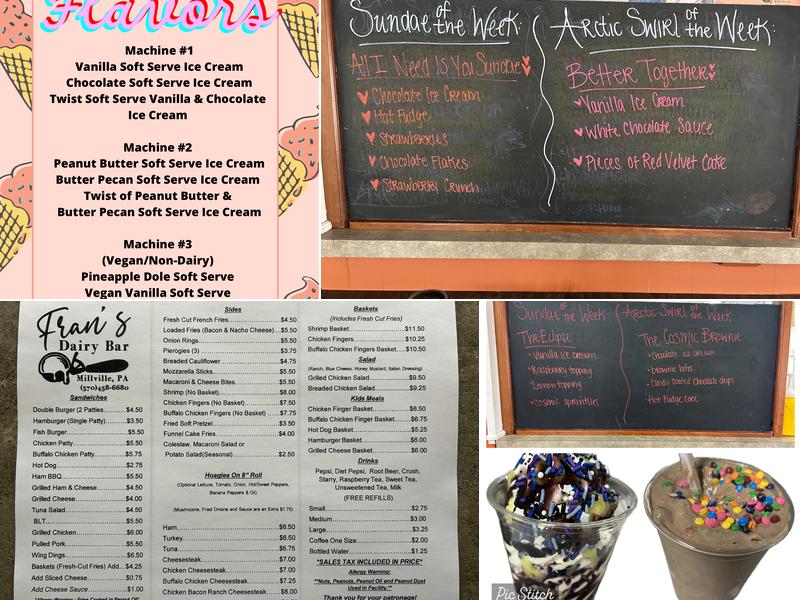 Flavors
Machine #1
Vanilla Soft Serve Ice Cream
Chocolate Soft Serve Ice Cream
Twist Soft Serve Vanilla & Chocolate
Ice Cream
Machine #2
Peanut Butter Soft Serve Ice Cream
Butter Pecan Soft Serve Ice Cream
Twist of Peanut Butter &
Butter Pecan Soft Serve Ice Cream
Machine #3
(Vegan/Non-Dairy)
Pineapple Dole Soft Serve
Vegan Vanilla Soft Serve
Sundae of the Week:
All I Need Is You Sundae
Chocolate Ice Cream
Hot Fudge
Strawberries
Chocolate Flakes
Strawberry Crunch
Arctic Swirl of the Week:
Better Together
Vanilla Ice Cream
White Chocolate Sauce
Pieces of Red Velvet Cake
Fran's
Dairy Bar
Millville, PA
(570)458-6680
Sandwiches
Double Burger (2 Patties......$4.50
Hamburger (Single Patty)......$3.50
Fish Burger......$5.50
Chicken Patty......$5.50
Buffalo Chicken Patty......$5.75
Hot Dog......$2.75
Ham BBQ......$5.50
Grilled Ham & Cheese......$4.50
Grilled Cheese......$4.00
Tuna Salad......$4.50
BLT......$5.50
Grilled Chicken......$6.00
Pulled Pork......$5.50
Wing Dings......$6.50
Baskets (Fresh-Cut Fries) Add...$4.25
Add Sliced Cheese......$0.75
Add Cheese Sauce......$1.00
Sides
Fresh Cut French Fries......$4.50
Loaded Fries (Bacon & Nacho Cheese)...$5.50
Onion Rings......$5.50
Pierogies (3)......$3.75
Breaded Cauliflower......$4.75
Mozzarella Sticks......$5.50
Macaroni & Cheese Bites......$5.50
Shrimp (No Basket)......$8.00
Chicken Fingers (No Basket)......$7.50
Buffalo Chicken Fingers (No Basket)......$7.75
Fried Soft Pretzel......$3.50
Funnel Cake Fries......$4.00
Coleslaw, Macaroni Salad or
Potato Salad(Seasonal)......$2.50
Hoagies On 8" Roll
(Optional Lettuce, Tomato, Onion, Hot/Sweet Peppers,
Banana Peppers & Oil)
(Mushrooms, Fried Onions and Sauce are an Extra $1.75)
Ham......$6.50
Turkey......$6.50
Tuna......$6.75
Cheesesteak......$7.00
Chicken Cheesesteak......$7.00
Buffalo Chicken Cheesesteak......$7.25
Chicken Bacon Ranch Cheesesteak......$8.00
Baskets
(Includes Fresh Cut Fries)
Shrimp Basket......$11.50
Chicken Fingers......$10.25
Buffalo Chicken Fingers Basket......$10.50
Salad
(Ranch, Blue Cheese, Honey Mustard, Italian Dressing)
Grilled Chicken Salad......$9.50
Breaded Chicken Salad......$9.25
Kids Meals
Chicken Finger Basket......$6.50
Buffalo Chicken Finger Basket......$6.75
Hot Dog Basket......$5.25
Hamburger Basket......$6.00
Grilled Cheese Basket......$6.00
Drinks
Pepsi, Diet Pepsi, Root Beer, Crush,
Starry, Raspberry Tea, Sweet Tea,
Unsweetened Tea, Milk
(FREE REFILLS)
Small......$2.75
Medium......$3.00
Large......$3.25
Coffee One Size......$2.00
Bottled Water......$1.25
*SALES TAX INCLUDED IN PRICE*
Allergy Warning:
**Nuts, Peanuts, Peanut Oil and Peanut Dust
Used in Facility.**
Thank you for your patronage!
Sundae of the Week
The Eclipse
Vanilla Ice cream
Raspberry topping
Lemon topping
cosmic sprinkles
Arctic Swirl of the Week
The Cosmic Brownie
Chocolate ice cream
brownie bites
Candy coated chocolate chips
Hot Fudge Core
Pic Stitch